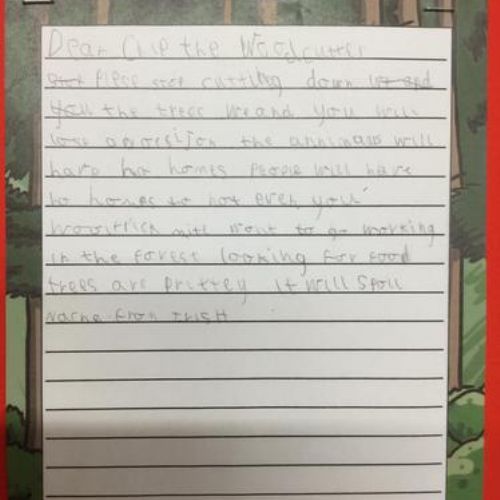 Dear Chip the Woodcutter
Plese stop cutting down
the trees we and you will
lose the annimals will
have no homes People will have
no homes to not even you
will want to go working
in the forest looking for food
trees are prittey it will spoil
from